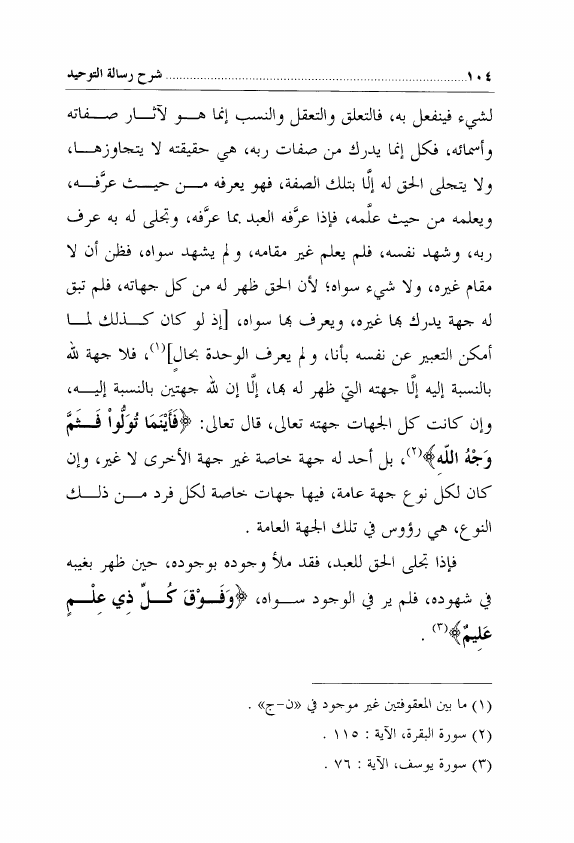 ١٠٤ ........ شرح رسالة التوحيد
لشيء فينفعل به، فالتعلق والتعقل والنسب إنما هـو لآثار صفاته
وأسمائه، فكل إنما يدرك من صفات ربه، هي حقيقته لا يتجاوزها،
ولا يتجلى الحق له إلَّا بتلك الصفة، فهو يعرفه من حيث عرَّفه،
ويعلمه من حيث علَّمه، فإذا عرَّفه العبد بما عرَّفه، وتجلى له به عرف
ربه، وشهد نفسه، فلم يعلم غير مقامه، ولم يشهد سواه، فظن أن لا
مقام غيره، ولا شيء سواه؛ لأن الحق ظهر له من كل جهاته، فلم تبق
له جهة يدرك بها غيره، ويعرف بها سواه، [إذ لو كان كذلك لما
أمكن التعبير عن نفسه بأنا، ولم يعرف الوحدة بحالٍ](١)، فلا جهة لله
بالنسبة إليه إلَّا جهته التي ظهر له بها، إلَّا إن لله جهتين بالنسبة إليه،
وإن كانت كل الجهات جهته تعالى، قال تعالى: ﴿فَأَيْنَمَا تُوَلُّواْ فَثَمَّ
وَجْهُ اللّهِ﴾(٢)، بل أحد له جهة خاصة غير جهة الأخرى لا غير، وإن
كان لكل نوع جهة عامة، فيها جهات خاصة لكل فرد من ذلك
النوع، هي رؤوس في تلك الجهة العامة .
فإذا تجلى الحق للعبد، فقد ملأ وجوده بوجوده، حين ظهر بغيبه
في شهوده، فلم ير في الوجود سواه، ﴿وَفَوْقَ كُلِّ ذِي عِلْمٍ
عَلِيمٌ﴾(٣) .
(١) ما بين المعقوفتين غير موجود في «ن-ج» .
(٢) سورة البقرة، الآية : ١١٥ .
(٣) سورة يوسف، الآية : ٧٦ .